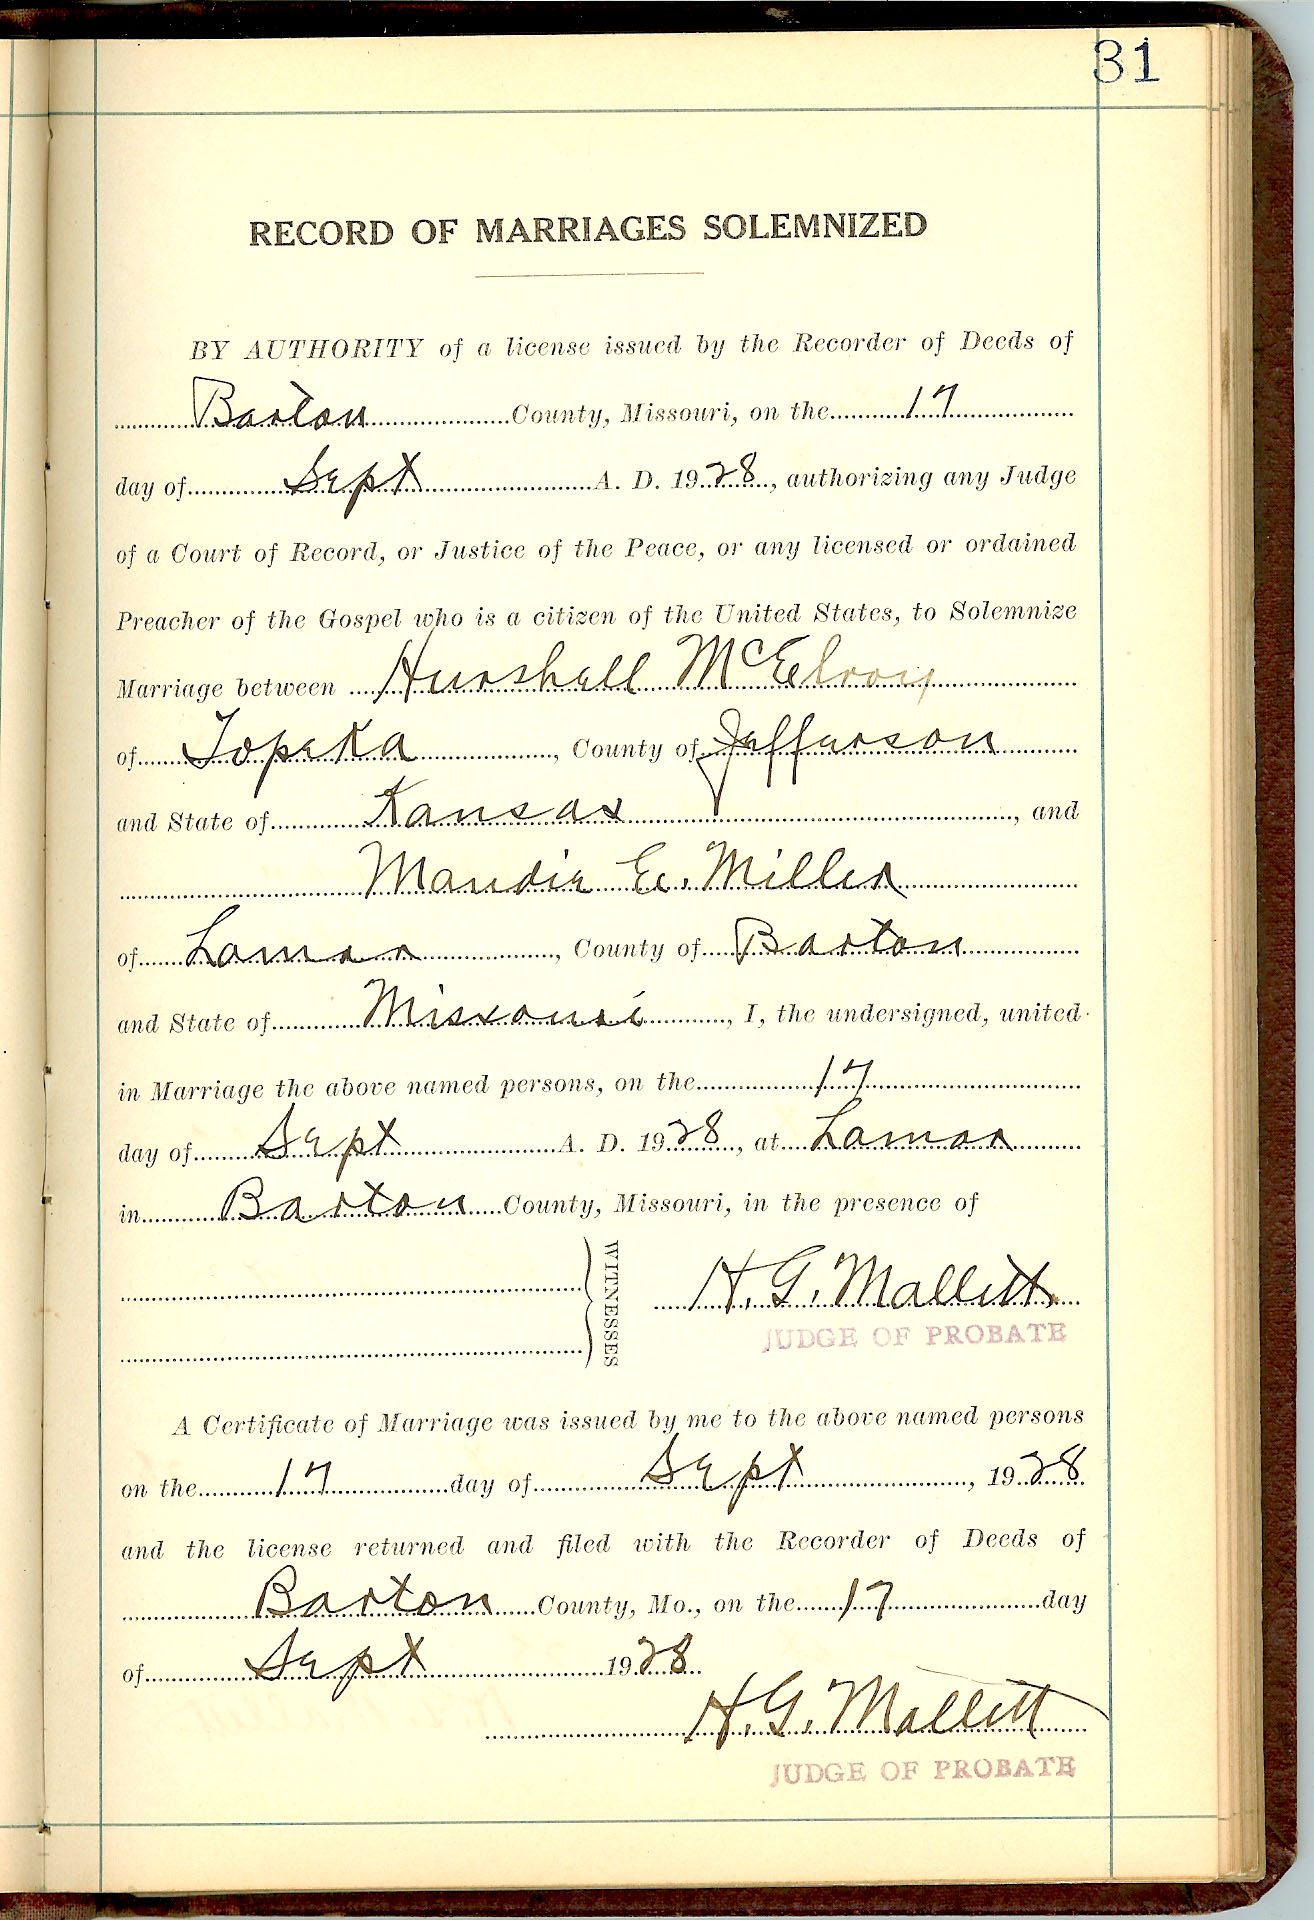 31
RECORD OF MARRIAGES SOLEMNIZED
BY AUTHORITY of a license issued by the Recorder of Deeds of
Barton County, Missouri, on the 17
day of Sept A. D. 1928, authorizing any Judge
of a Court of Record, or Justice of the Peace, or any licensed or ordained
Preacher of the Gospel who is a citizen of the United States, to Solemnize
Marriage between Hurshell McElroy
of Topeka, County of Jefferson
and State of Kansas, and
Maudie E. Miller
of Lamar, County of Barton
and State of Missouri, I, the undersigned, united
in Marriage the above named persons, on the 17
day of Sept A. D. 1928, at Lamar
in Barton County, Missouri, in the presence of
WITNESSES
H. G. Mallett
JUDGE OF PROBATE
A Certificate of Marriage was issued by me to the above named persons
on the 17 day of Sept, 1928
and the license returned and filed with the Recorder of Deeds of
Barton County, Mo., on the 17 day
of Sept 1928
H. G. Mallett
JUDGE OF PROBATE